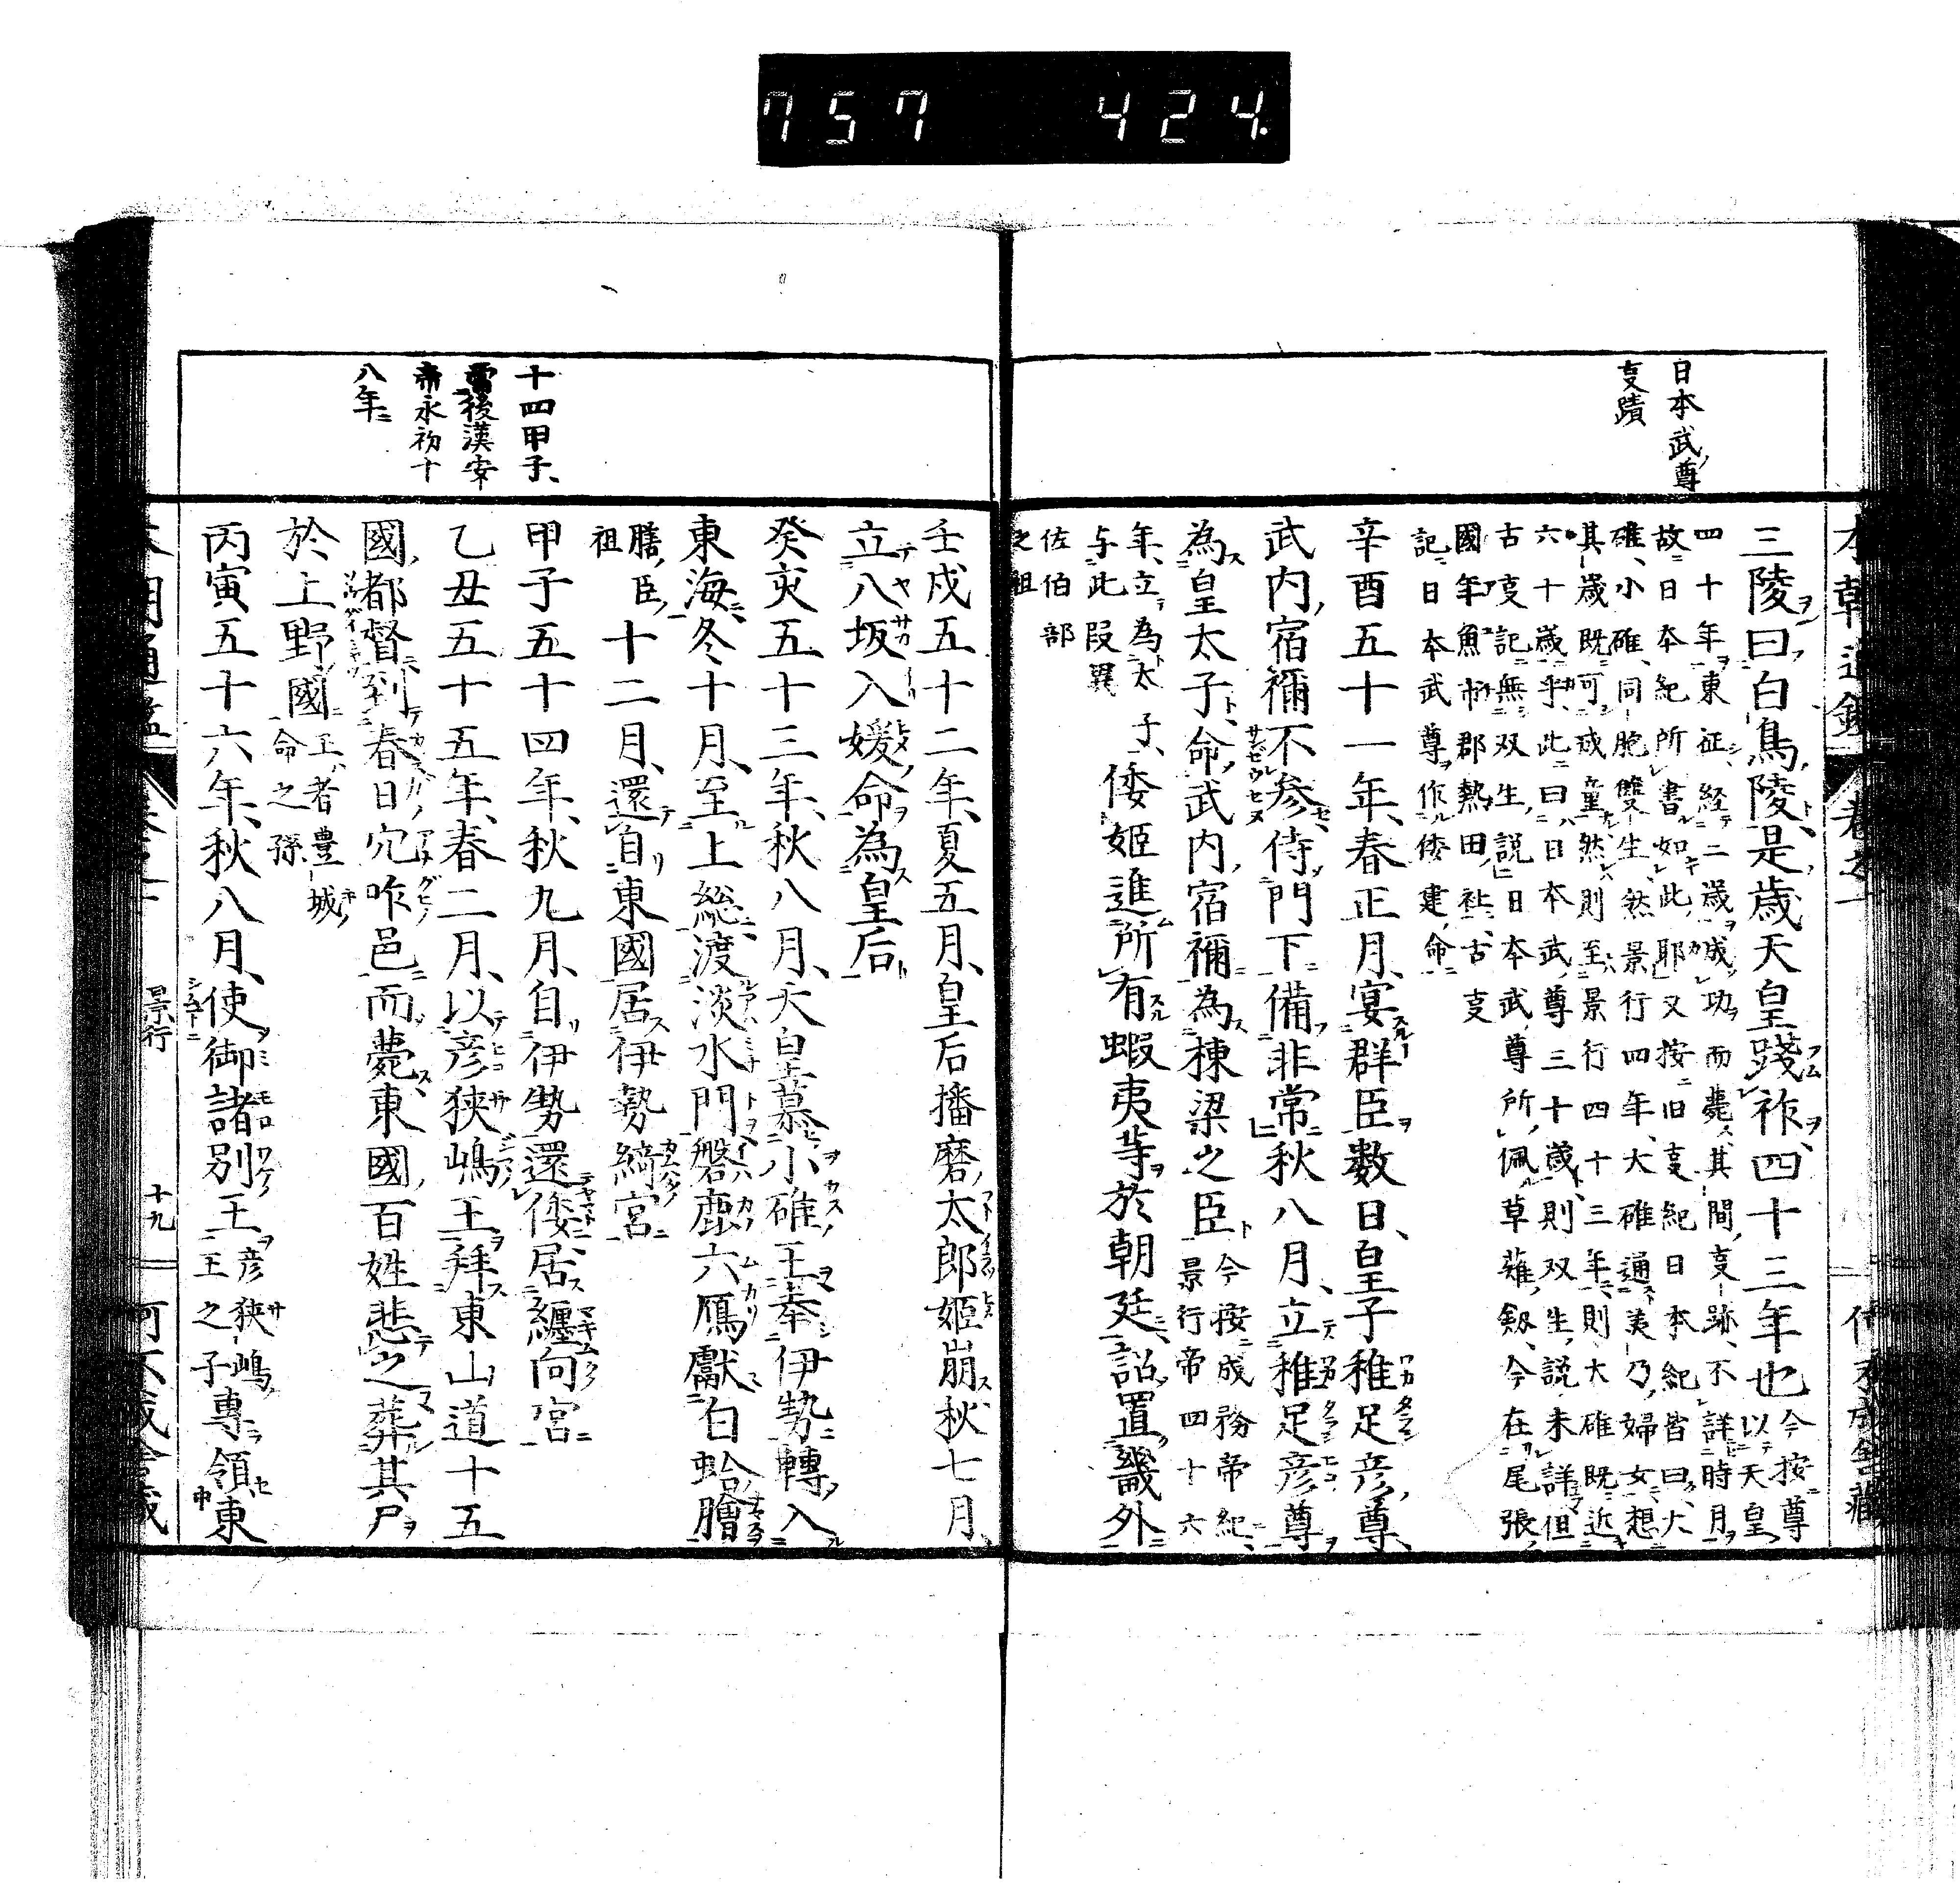 757 424.
日本武尊
叓蹟
三陵曰白鳥陵是歳天皇踐祚四十三年也今按尊
以天皇
四十年東征経二歳成功而薨其間叓跡不詳時月
故日本紀所書如此耶又按旧叓紀日本紀皆曰大
碓小碓同胞雙生然景行四年大碓通美乃婦女想
其歳既可成童然則至景行四十三年則大碓既近
六十歳乎此曰日本武尊三十歳則双生説未詳但
古叓記無双生説日本武尊所佩草薙劔今在尾張
國年魚市郡熱田社古叓
記日本武尊作倭建命
辛酉五十一年春正月宴群臣数日皇子稚足彦尊
武内宿禰不参侍門下備非常秋八月立稚足彦尊
為皇太子命武内宿禰為棟梁之臣今按成務帝紀
景行帝四十六
年立為太子
与此叚異
倭姬進所有蝦夷等於朝廷詔置畿外
佐伯部
之祖
壬戌五十二年夏五月皇后播磨太郎姬崩秋七月
立八坂入媛命為皇后
癸亥五十三年秋八月天皇慕小碓王奉伊勢轉入
東海冬十月至上総渡淡水門磐鹿六鴈獻白蛤膾
膳臣
祖
十二月還自東國居伊勢綺宮
十四甲子
當後漢安
帝永初十
八年
甲子五十四年秋九月自伊勢還倭居纏向宮
乙丑五十五年春二月以彦狹嶋王拜東山道十五
國都督到春日穴咋邑而薨東國百姓悲之葬其尸
於上野國王者豊城
命之孫
丙寅五十六年秋八月使御諸別王彦狹嶋
王之子
專領東
景行
十九